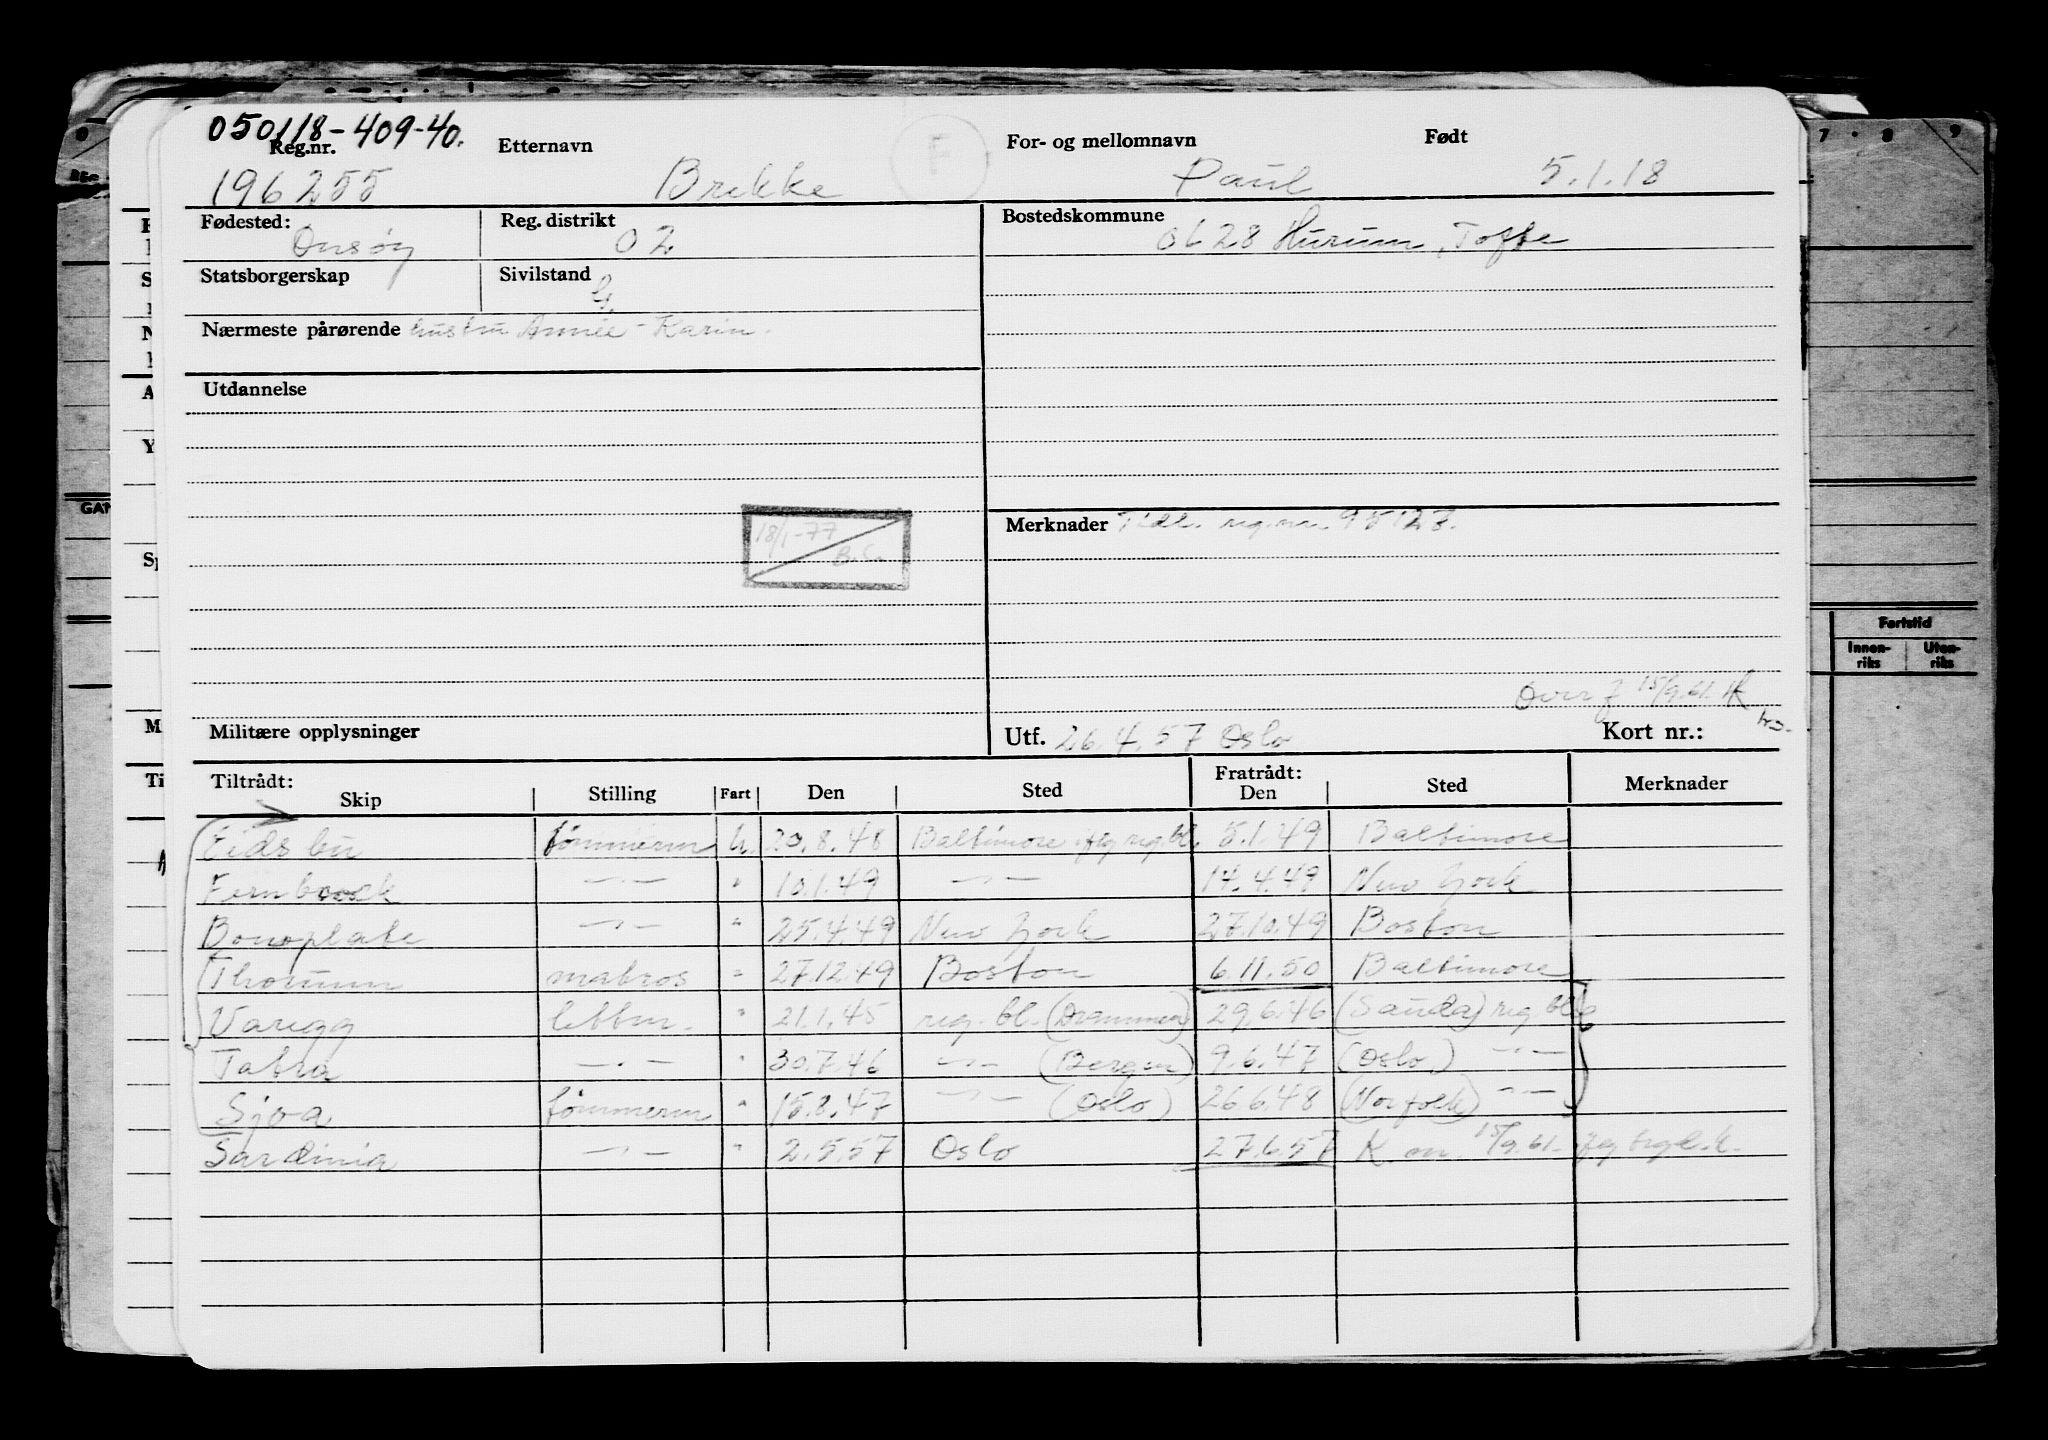 050118-409-40.
Reg.nr. Etternavn F For- og mellomnavn Født
196255 Brekke Paul 5.1.18
Fødested: Onsøy Reg. distrikt 02 Bostedskommune 0628 Hurum, Tofte
Statsborgerskap Sivilstand G.
Nærmeste pårørende hustru Annie-Karin.
Utdannelse
Merknader Tidl. reg.nr. 95123.
18/1-77
Overf 15/9.61.
Militære opplysninger Utf. 26.4.57 Oslo Kort nr.:
Tiltrådt: Fratrådt:
Skip Stilling Fart Den Sted Den Sted Merknader
Eidsbu tømmerm U. 20.8.48 Baltimore iflg reg.bl. 5.1.49 Baltimore
Fernbrook -"- " 10.1.49 -"- 14.4.49 New York
Bonoplate -"- " 25.4.49 New York 27.10.49 Boston
Thorunn matros " 27.12.49 Boston 6.11.50 Baltimore
Varegg lettm. " 21.1.45 reg. bl. (Drammen) 29.6.46 (Sauda) reg bl.
Tatra -"- " 30.7.46 -"- (Bergen) 9.6.47 (Oslo) -"-
Sjoa tømmerm " 15.8.47 -"- (Oslo) 26.6.48 (Norfolk) -"-
Sardinia -"- " 2.5.57 Oslo 27.6.57 K. m. 15/9.61.
GAN
Fartstid
Innen-
riks
Uten-
riks
7 . 8 . 9